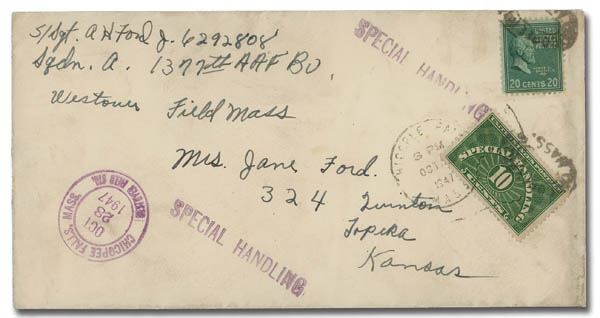 S/Sgt. A H Ford Jr. 6292808
Sqdn. A. 1377th AAF BU,
Westover Field Mass
SPECIAL HANDLING
20 CENTS 20
CHICOPEE FALLS
3 PM
OCT
1947
MASS.
MASS.
SPECIAL HANDLING
10
Mrs. Jane Ford.
324 Quinton
Topeka
Kansas
SPECIAL HANDLING
CHICOPEE FALLS, MASS.
OCT
28
1947
WESTOVER FIELD STA.